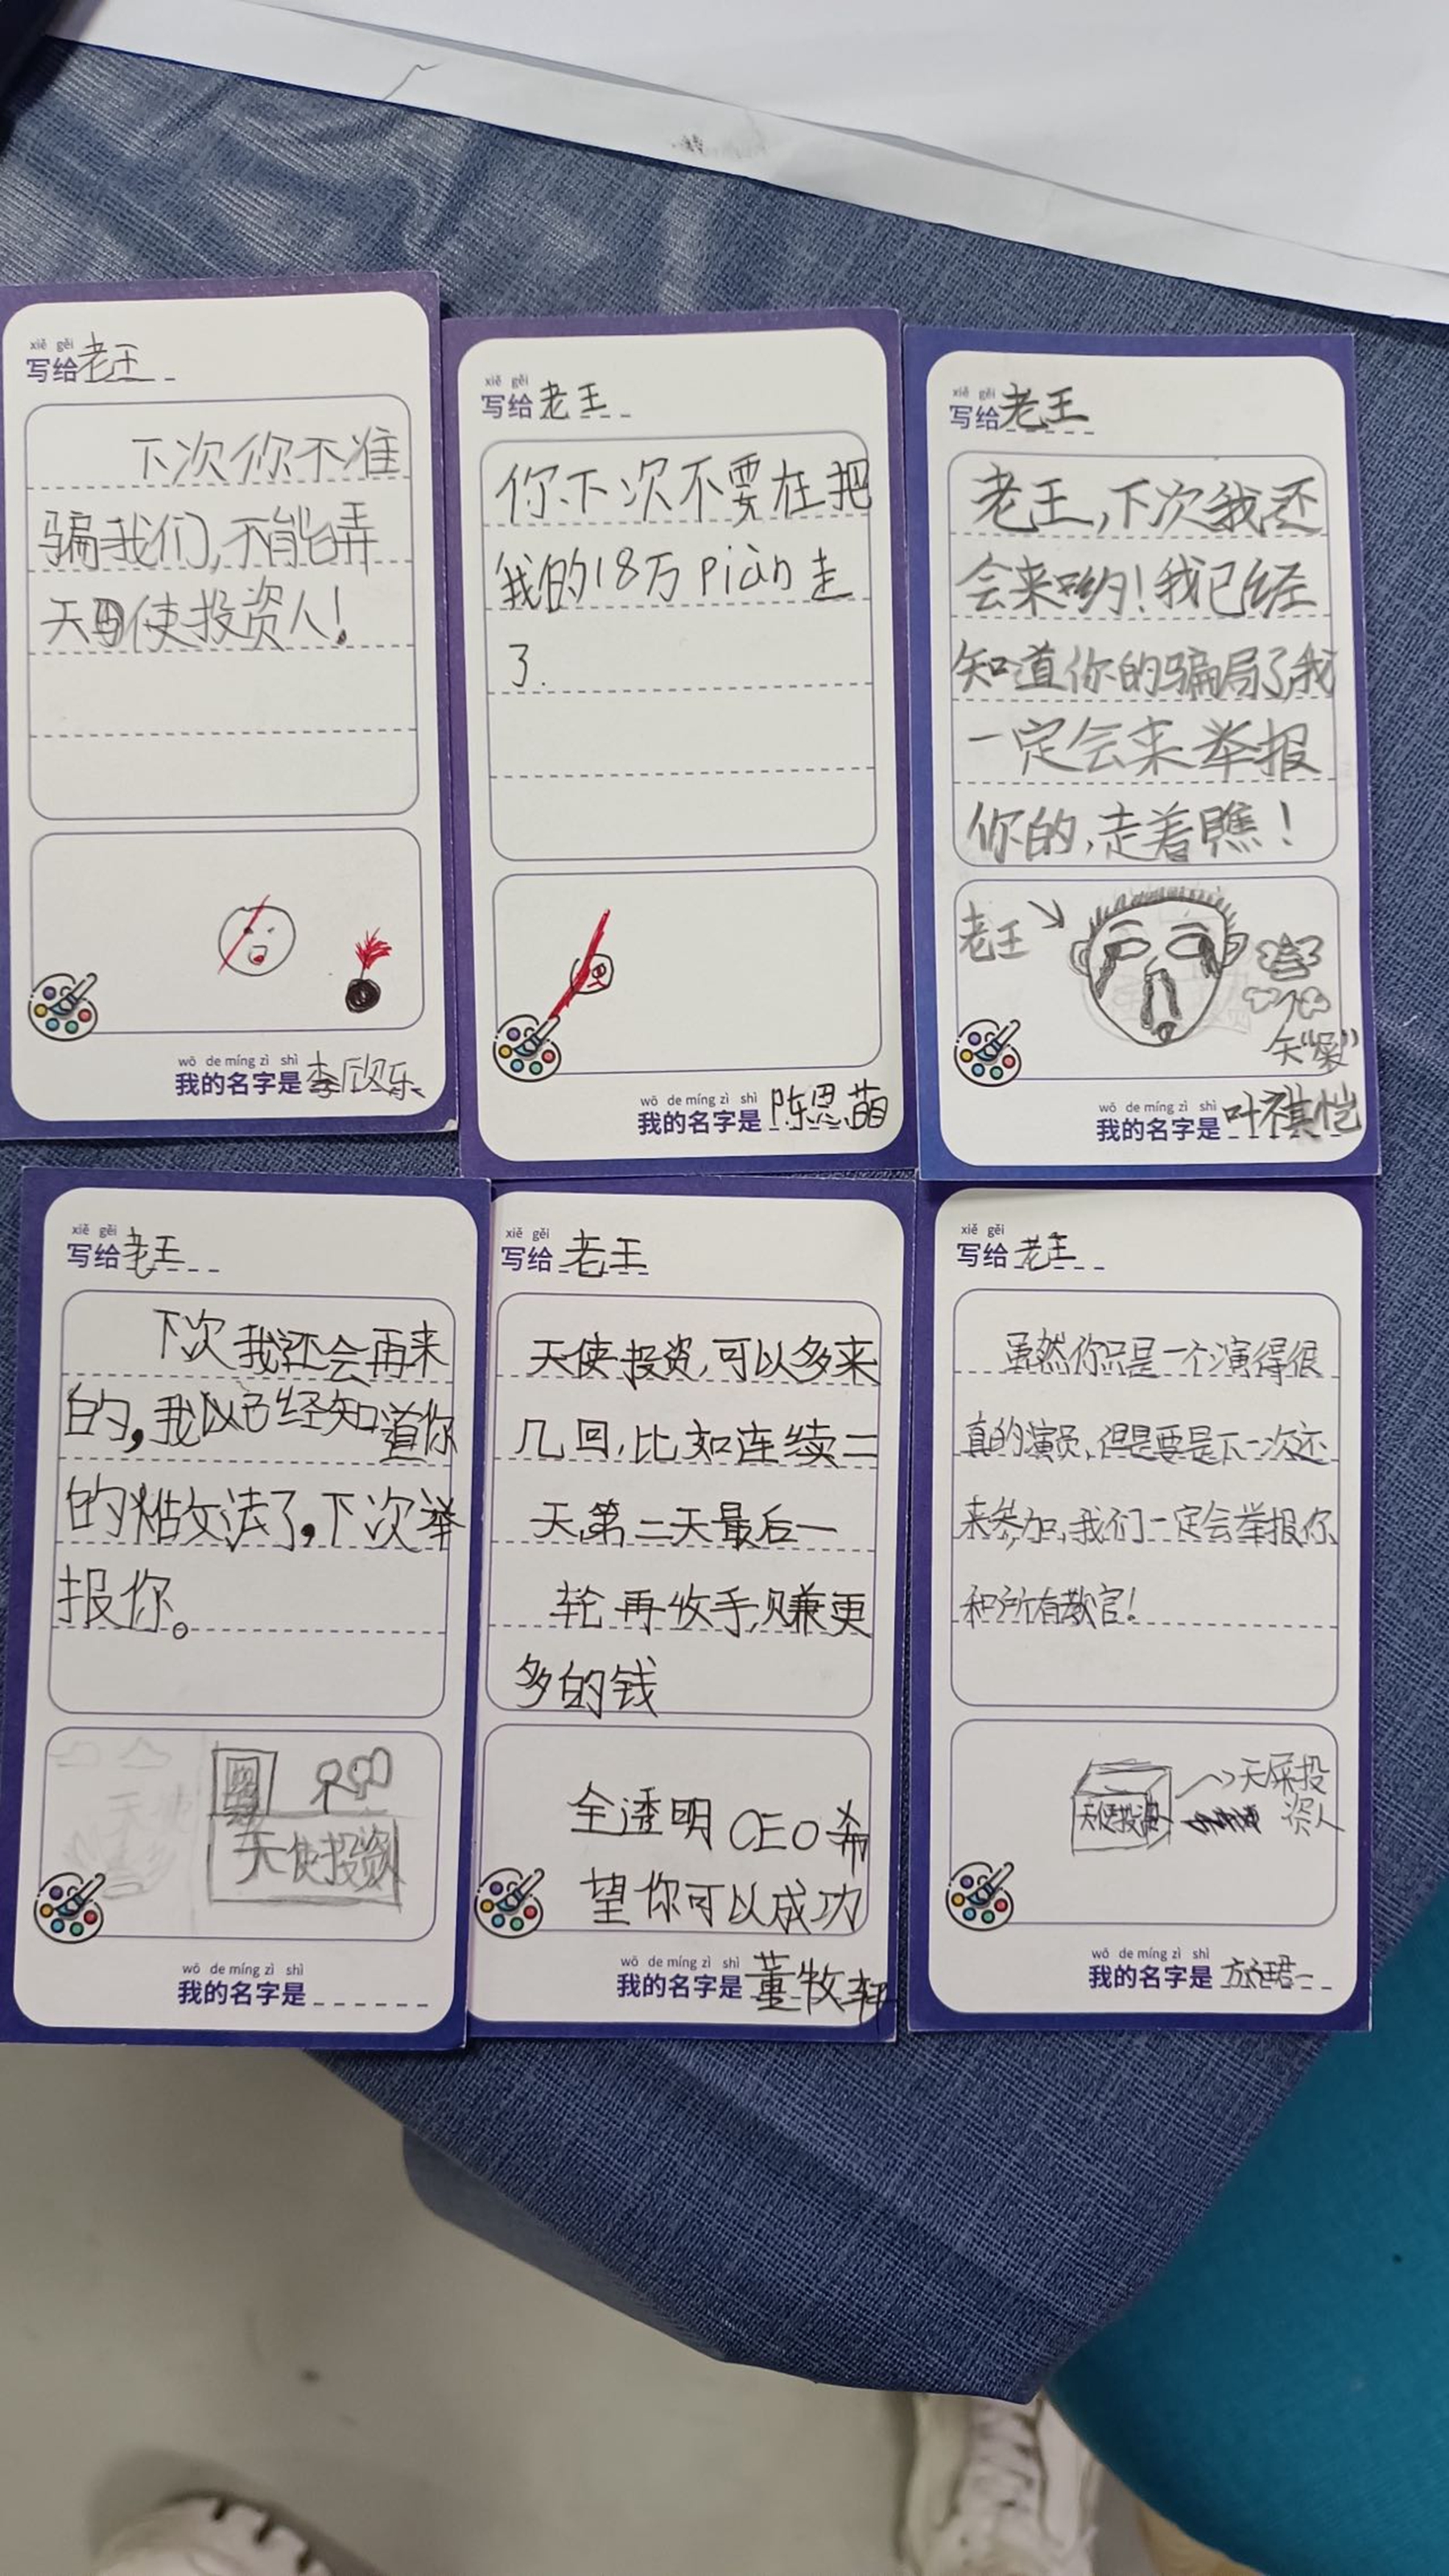 xiě gěi
写给老王
下次你不准
骗我们,不能弄
天使投资人!
wǒ de míng zì shì
我的名字是李欣乐
xiě gěi
写给老王
你下次不要在把
我的18万piàn走
了.
wǒ de míng zì shì
我的名字是陈思萌
xiě gěi
写给老王
老王,下次我还
会来哟!我已经
知道你的骗局了我
一定会来举报
你的,走着瞧!
老王
天"屎"
wǒ de míng zì shì
我的名字是叶祺恺
xiě gěi
写给老王
下次我还会再来
的,我以已经知道你
的做法了,下次举
报你。
天使投资
wǒ de míng zì shì
我的名字是
xiě gěi
写给老王
天使投资,可以多来
几回,比如连续二
天,第二天最后一
轮再收手,赚更
多的钱
全透明CEO希
望你可以成功
wǒ de míng zì shì
我的名字是董牧轩
xiě gěi
写给老王
虽然你只是一个演得很
真的演员,但是要是下一次还
来参加,我们一定会举报你
和所有教官!
天使投资
天屎投
资人
wǒ de míng zì shì
我的名字是